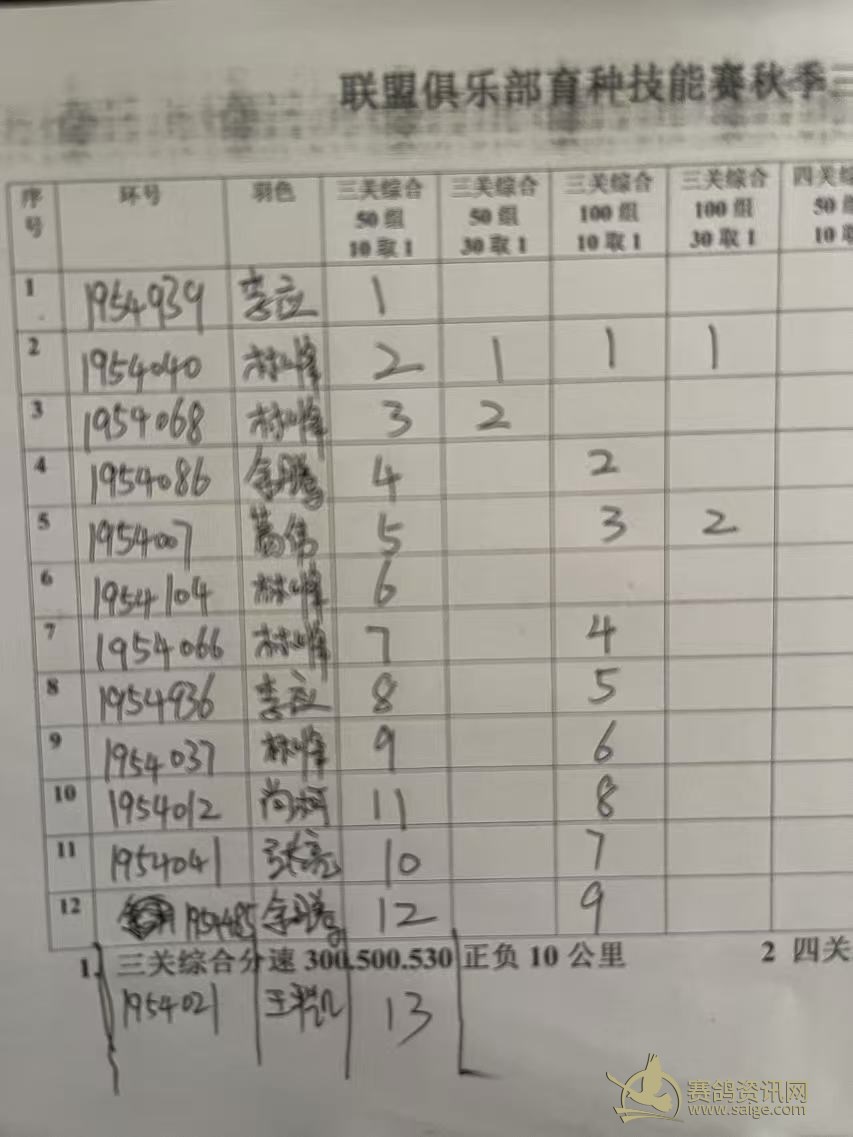 联盟俱乐部育种技能赛秋季三
序号 环号 羽色 三关综合 50 组 10 取 1 三关综合 50 组 30 取 1 三关综合 100 组 10 取 1 三关综合 100 组 30 取 1 四关综 50 组 10 取
1 1954939 李应 1
2 1954040 林峰 2 1 1 1
3 1954068 林峰 3 2
4 1954086 余鹏 4 2
5 1954007 葛伟 5 3 2
6 1954104 林峰 6
7 1954066 林峰 7 4
8 1954936 李应 8 5
9 1954037 林峰 9 6
10 1954012 11 8
11 1954041 张亮 10 7
12 1954485 余鹏 12 9
1. 三关综合分速 300.500.530 正负 10 公里 2 四关
1954021 13
赛鸽资讯网
www.saige.com